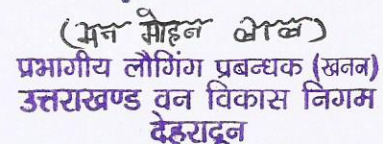 (मन मोहन लाल)
प्रभागीय लौगिंग प्रबन्धक (खनन)
उत्तराखण्ड वन विकास निगम
देहरादून